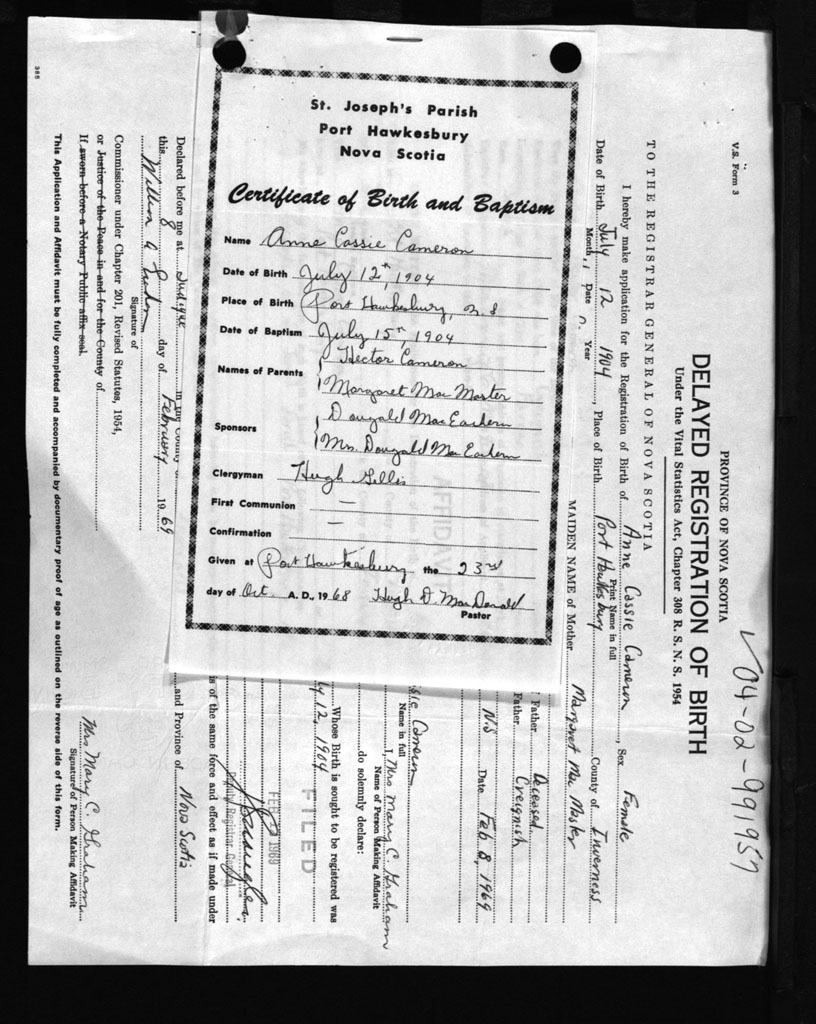 St. Joseph's Parish
Port Hawkesbury
Nova Scotia
Certificate of Birth and Baptism
Name Anne Cassie Cameron
Date of Birth July 12th, 1904
Place of Birth Port Hawkesbury, N.S
Date of Baptism July 15th, 1904
Names of Parents Hector Cameron
Margaret MacMaster
Sponsors Dougald MacEachern
Mrs. Dougald MacEachern
Clergyman Hugh Gillis
First Communion —
Confirmation —
Given at Port Hawkesbury the 23rd
day of Oct. A. D., 1968 Hugh D. MacDonald
Pastor
V.S. Form 3
04-02-991957
PROVINCE OF NOVA SCOTIA
DELAYED REGISTRATION OF BIRTH
Under the Vital Statistics Act, Chapter 308 R. S. N. S. 1954
TO THE REGISTRAR GENERAL OF NOVA SCOTIA
I hereby make application for the Registration of Birth of Anne Cassie Cameron, Sex Female
Print Name in full
Date of Birth July 12 1904, Place of Birth Port Hawkesbury County of Inverness
Month Date Year
MAIDEN NAME of Mother Margaret MacMaster
Father Deceased
Father Creignish
N.S Date Feb 8, 1969
AFFIDAVIT
I, Mrs Mary C. Graham
Name of Person Making Affidavit
ssie Cameron
Name in full
do solemnly declare:
Whose Birth is sought to be registered was
ly 12, 1904
FILED
FEB 1969
Deputy Registrar General
is of the same force and effect as if made under
Declared before me at Judique in the County of
and Province of Nova Scotia
this 8 day of February 1969
Signature of
Commissioner under Chapter 201, Revised Statutes, 1954,
or Justice of the Peace in and for the County of
If sworn before a Notary Public affix seal.
Mrs Mary C. Graham
Signature of Person Making Affidavit
This Application and Affidavit must be fully completed and accompanied by documentary proof of age as outlined on the reverse side of this form.